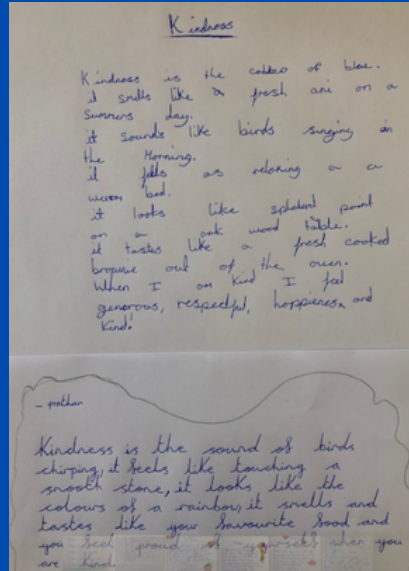 Kindness
Kindness is the of blue.
it smells like a fresh on a
Summers day.
it sounds like birds singing in
the Morning.
it as relaxing a a
bed.
it looks like paint
on a oak wood table.
it tastes like a fresh cooked
out of the oven.
When I am kind I feel
generous, respectful, and
Kind!
Kindness is the sound of birds
chirping, it feels like touching a
smooth stone, it looks like the
colours of a rainbow, it smells and
tastes like your favourite food and
you feel proud of yourself when you
are kind